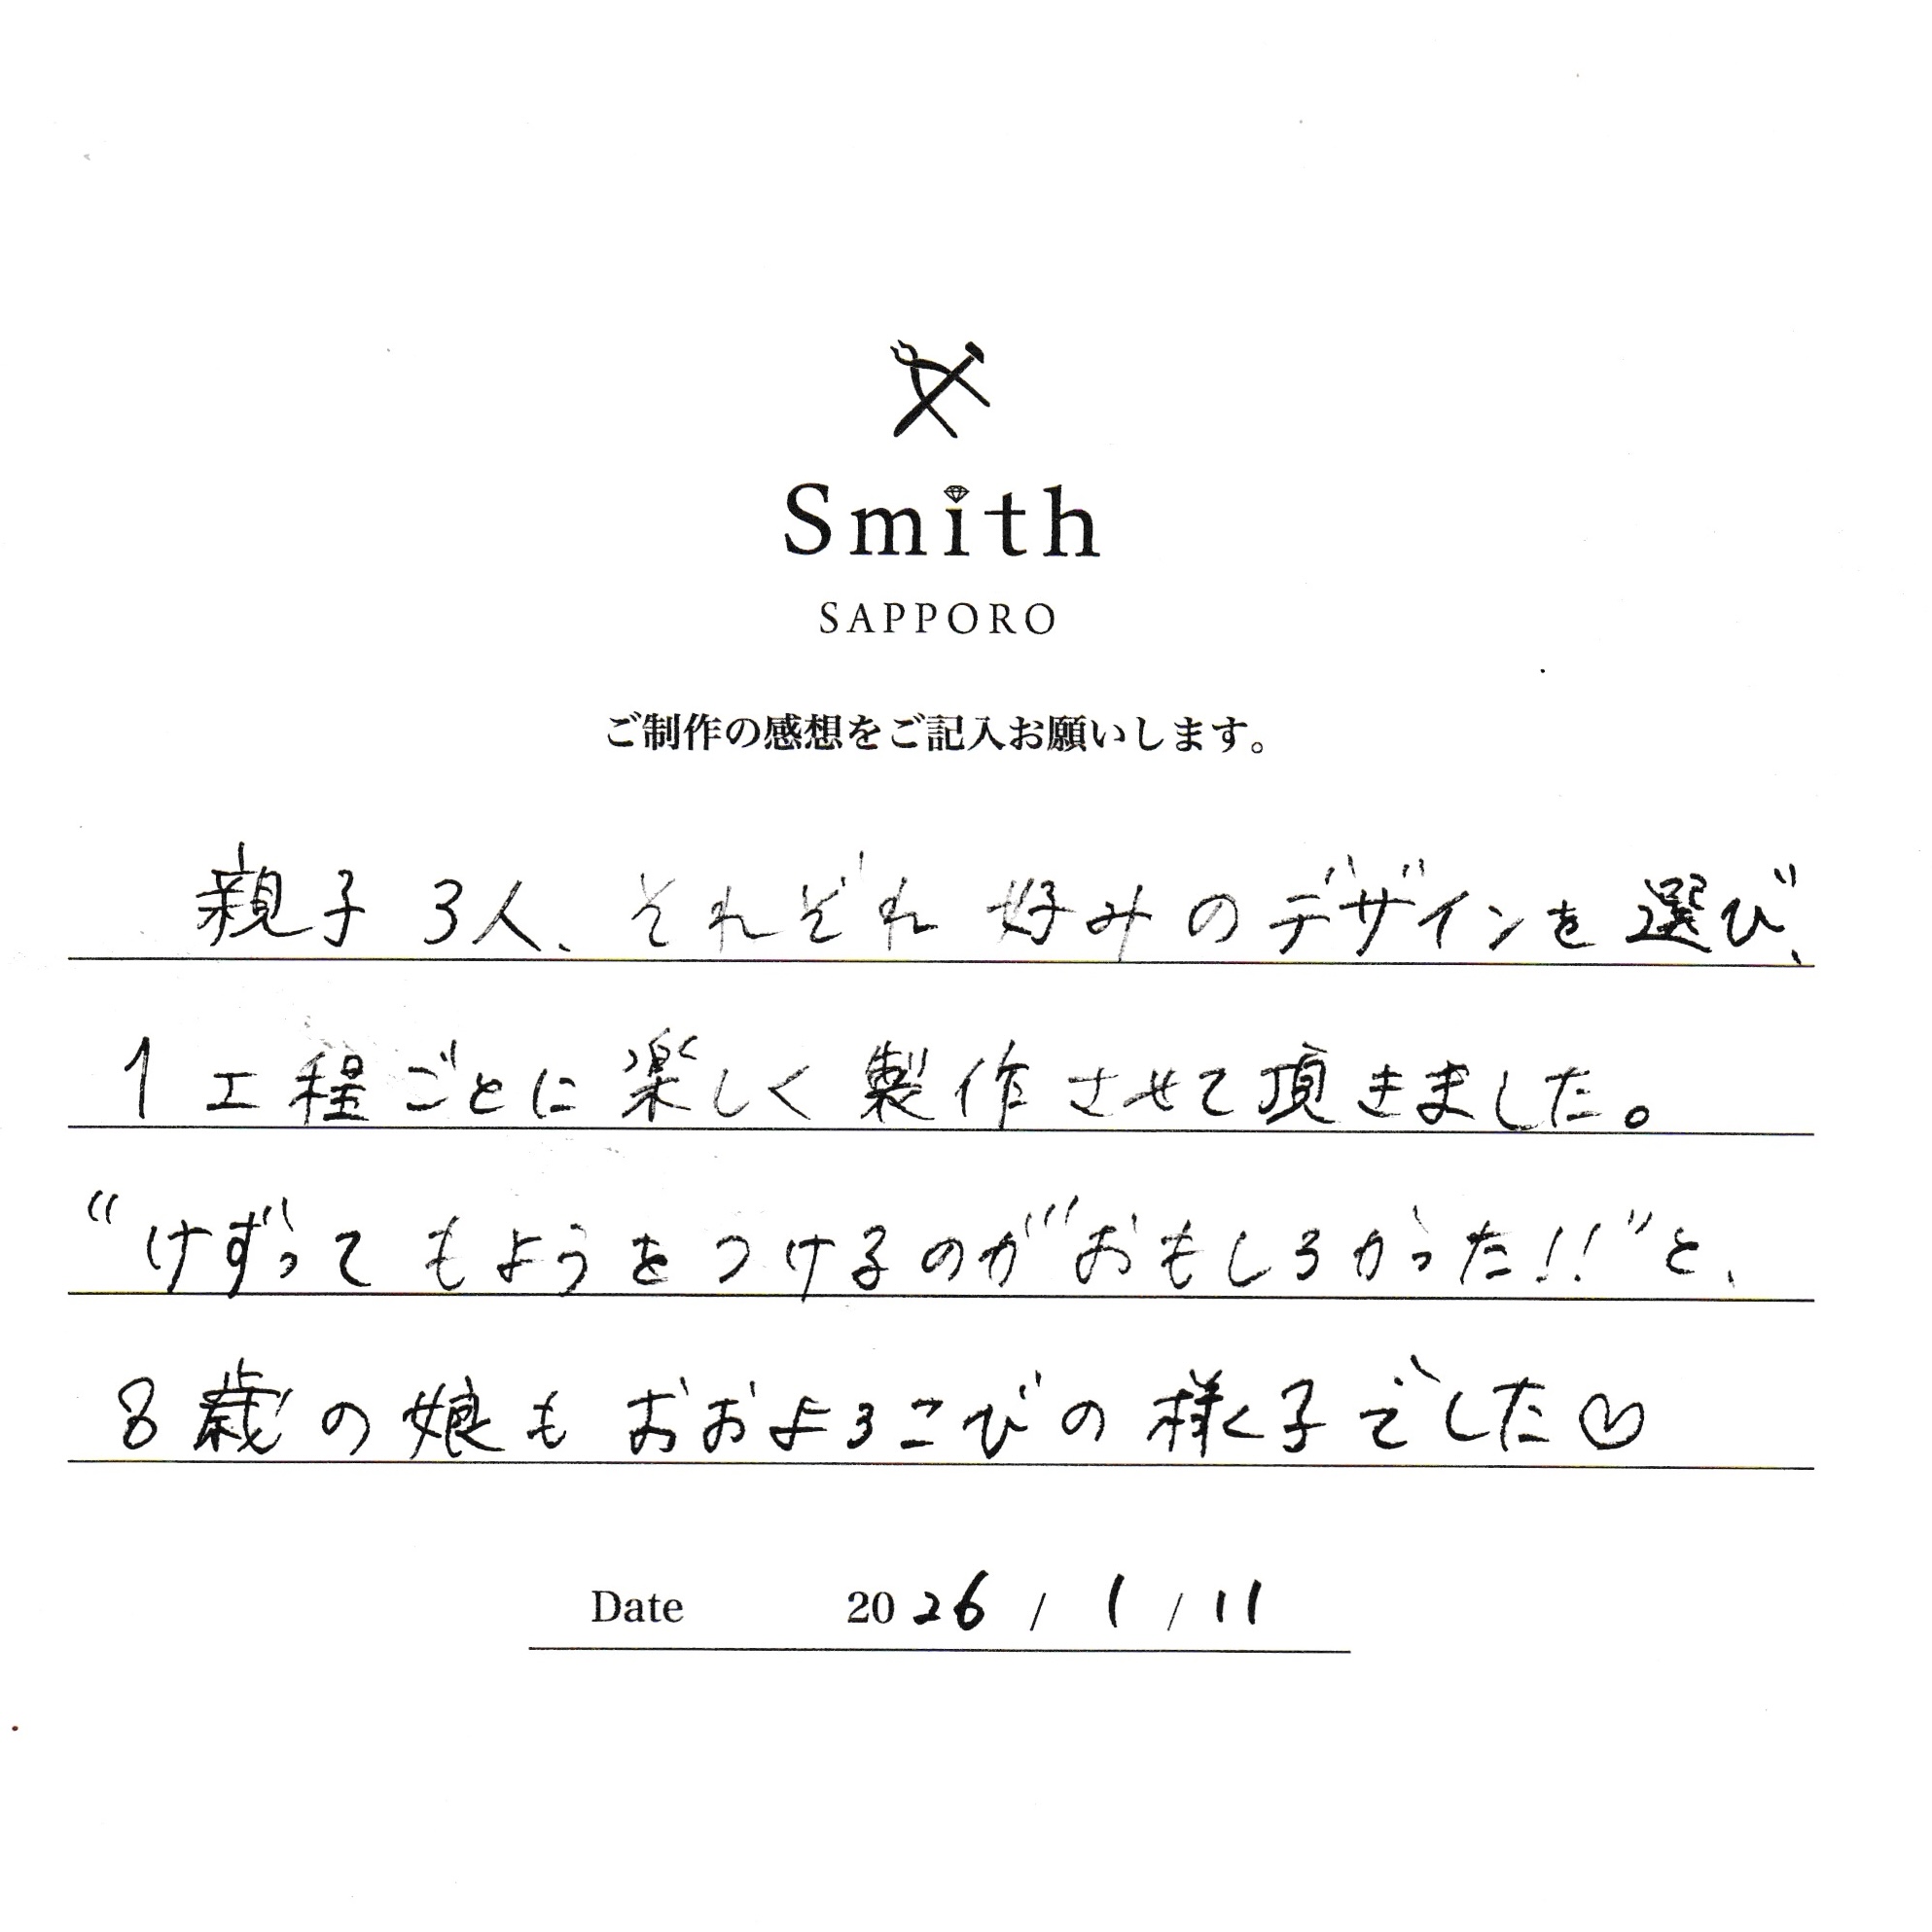 Smith
SAPPORO
ご制作の感想をご記入お願いします。
親子3人、それぞれ好みのデザインを選び、
1工程ごとに楽しく製作させて頂きました。
“けずってもようをつけるのが“おもしろかった!!”と、
8歳の娘もおおよろこびの様子でした♡
Date 2026 / 1 / 11